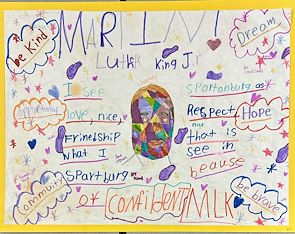 MARTIN
Luthr King Jr.
be kind
Dream
I see
Spartanburg as
opportunity
love, nice,
Respect,
Hope
Frindship
that is
What I
see in
Spartburg
beause
community
of Confident MLK
be brave